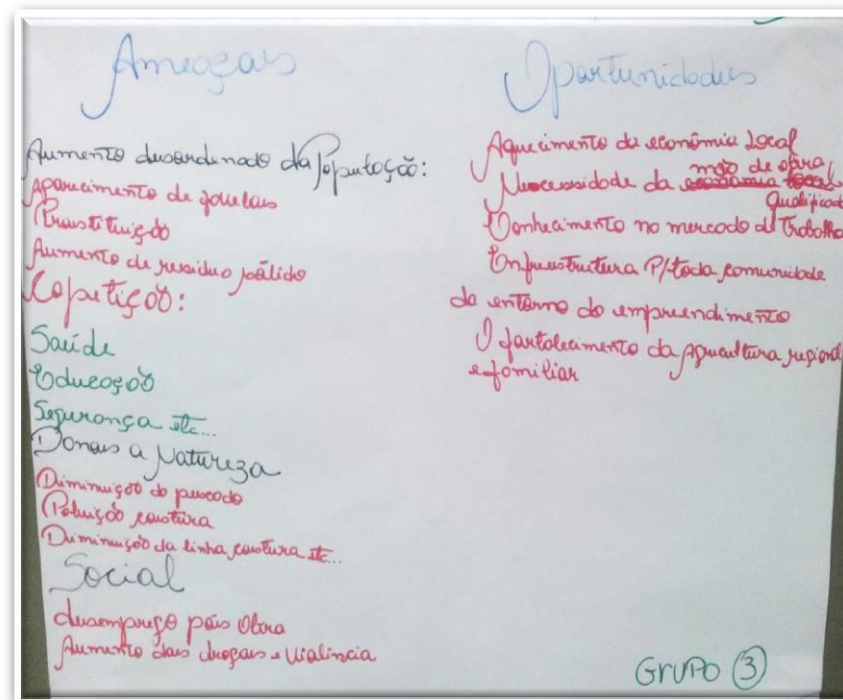 Ameaças
Aumento desordenado da População:
Aparecimento de favelas
Prostituição
Aumento de residuo sólido
Copetição:
Saúde
Educação
Segurança etc...
Danos a Natureza
Diminuição do pescado
Poluição costeira
Diminuição da linha costeira etc...
Social
desemprego pós Obra
Aumento das drogas e Violência
Oportunidades
Aquecimento da econômia Local
Necessidade da economia local mão de obra
Qualificada
Conhecimento no mercado de Trabalho
Enfraestrutura P/ toda comunidade
do entorno do empreendimento
O fortalecimento da Agricultura regional
e familiar
GRUPO 3